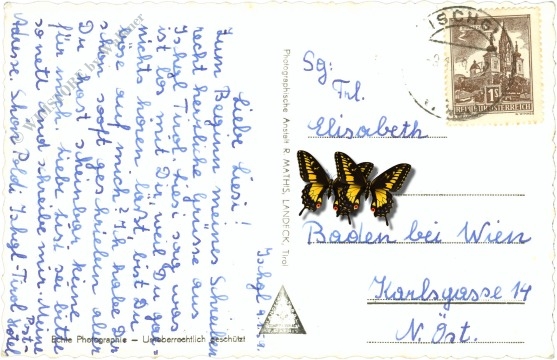 Ischgl 9.
Liebe Liesi!
Zum Beginn meines Schreiben
recht herzliche Grüsse aus
Ischgl Tirol. Liesi sag was
ist los mit Dir weil Du gar
nichts hören lässt, bist Du
böse auf mich? Ich habe Dir
schon so oft geschrieben aber
Du hast scheinbar keine
für mich. Liebe Lisi sei bitte
so nett und schreibe mir. Meine
Adresse. Poldi Ischgl-Tirol
Post-
Hotel
Photographische Anstalt R. MATHIS, LANDECK, Tirol
Echte Photographie - Urheberrechtlich geschützt
ISCHGL
REPUBLIK ÖSTERREICH
1S
Sg:
Frl.
Elisabeth
Baden bei Wien
Karlsgasse 14
N. Öst.